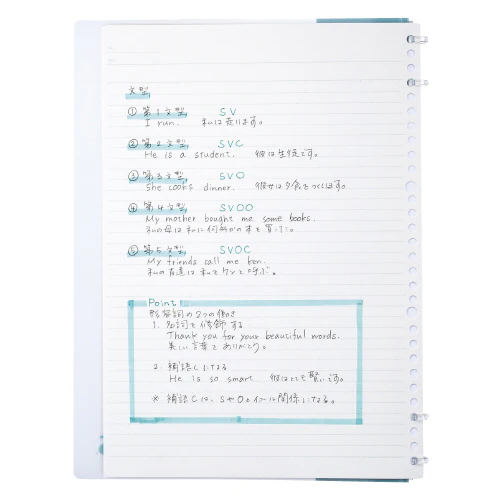 文型
① 第1文型 SV
I run. 私は走ります。
② 第2文型 SVC
He is a student. 彼は生徒です。
③ 第3文型 SVO
She cooks dinner. 彼女は夕食をつくります。
④ 第4文型 SVOO
My mother bought me some books.
私の母は私に何冊かの本を買った。
⑤ 第5文型 SVOC
My friends call me Ken.
私の友達は私をケンと呼ぶ。
Point
形容詞の2つの働き
1. 名詞を修飾する
Thank you for your beautiful words.
美しい言葉をありがとう。
2. 補語になる
He is so smart. 彼はとても賢いです。
※ 補語Cは、SやOとイコール関係になる。